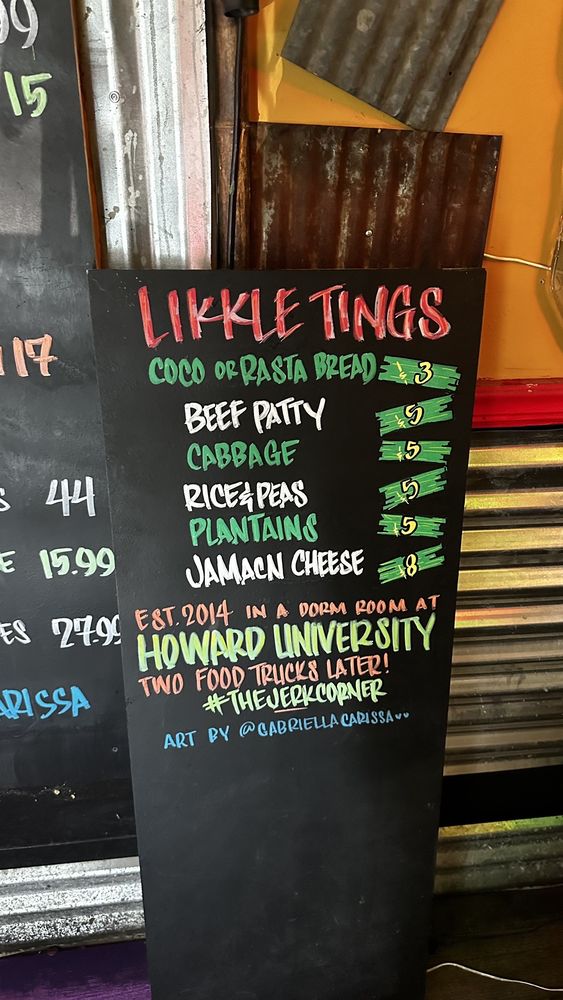 99
15
17
S 44
E 15.99
ES 27.99
ARISSA
LIKKLE TINGS
COCO OR RASTA BREAD $3
BEEF PATTY $5
CABBAGE $5
RICE & PEAS $5
PLANTAINS $5
JAMACN CHEESE $8
EST. 2014 IN A DORM ROOM AT
HOWARD UNIVERSITY
TWO FOOD TRUCKS LATER!
#THEJERKCORNER
ART BY @GABRIELLACARISSA